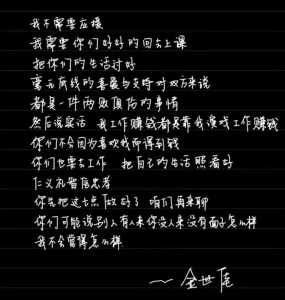 我不需要应援
我需要你们好好的回去上课
把你们的生活过好
毫无底线的喜爱与支持对双方来说
都是一件两败俱伤的事情
然后说实话 我工作赚钱都是靠我演戏工作赚钱
你们不会因为喜欢我而得到钱
你们也要去工作 把自己的生活照看好
仁义礼智信忠孝
你先把这七点做好了 咱们再来聊
你们可能说别人有人来你没人来没有面子怎么样
我不会觉得怎么样
——金世佳